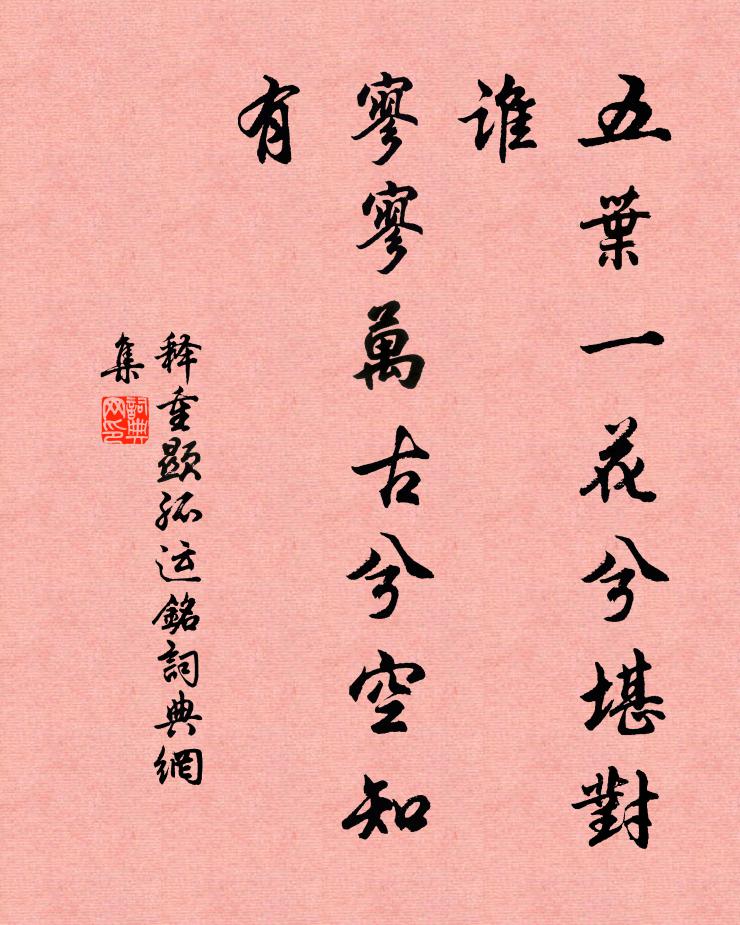 五葉一花兮堪對
誰
寥寥萬古兮空知
有
释重顯孤运銘詞典網
集
詞典
网印